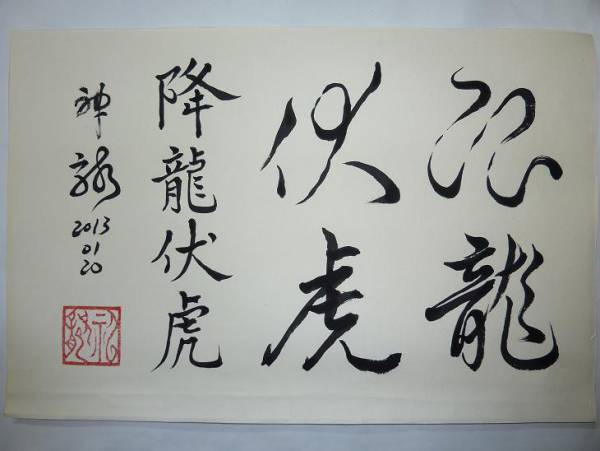 降龍
伏虎
降龍伏虎
神
2013
01
20